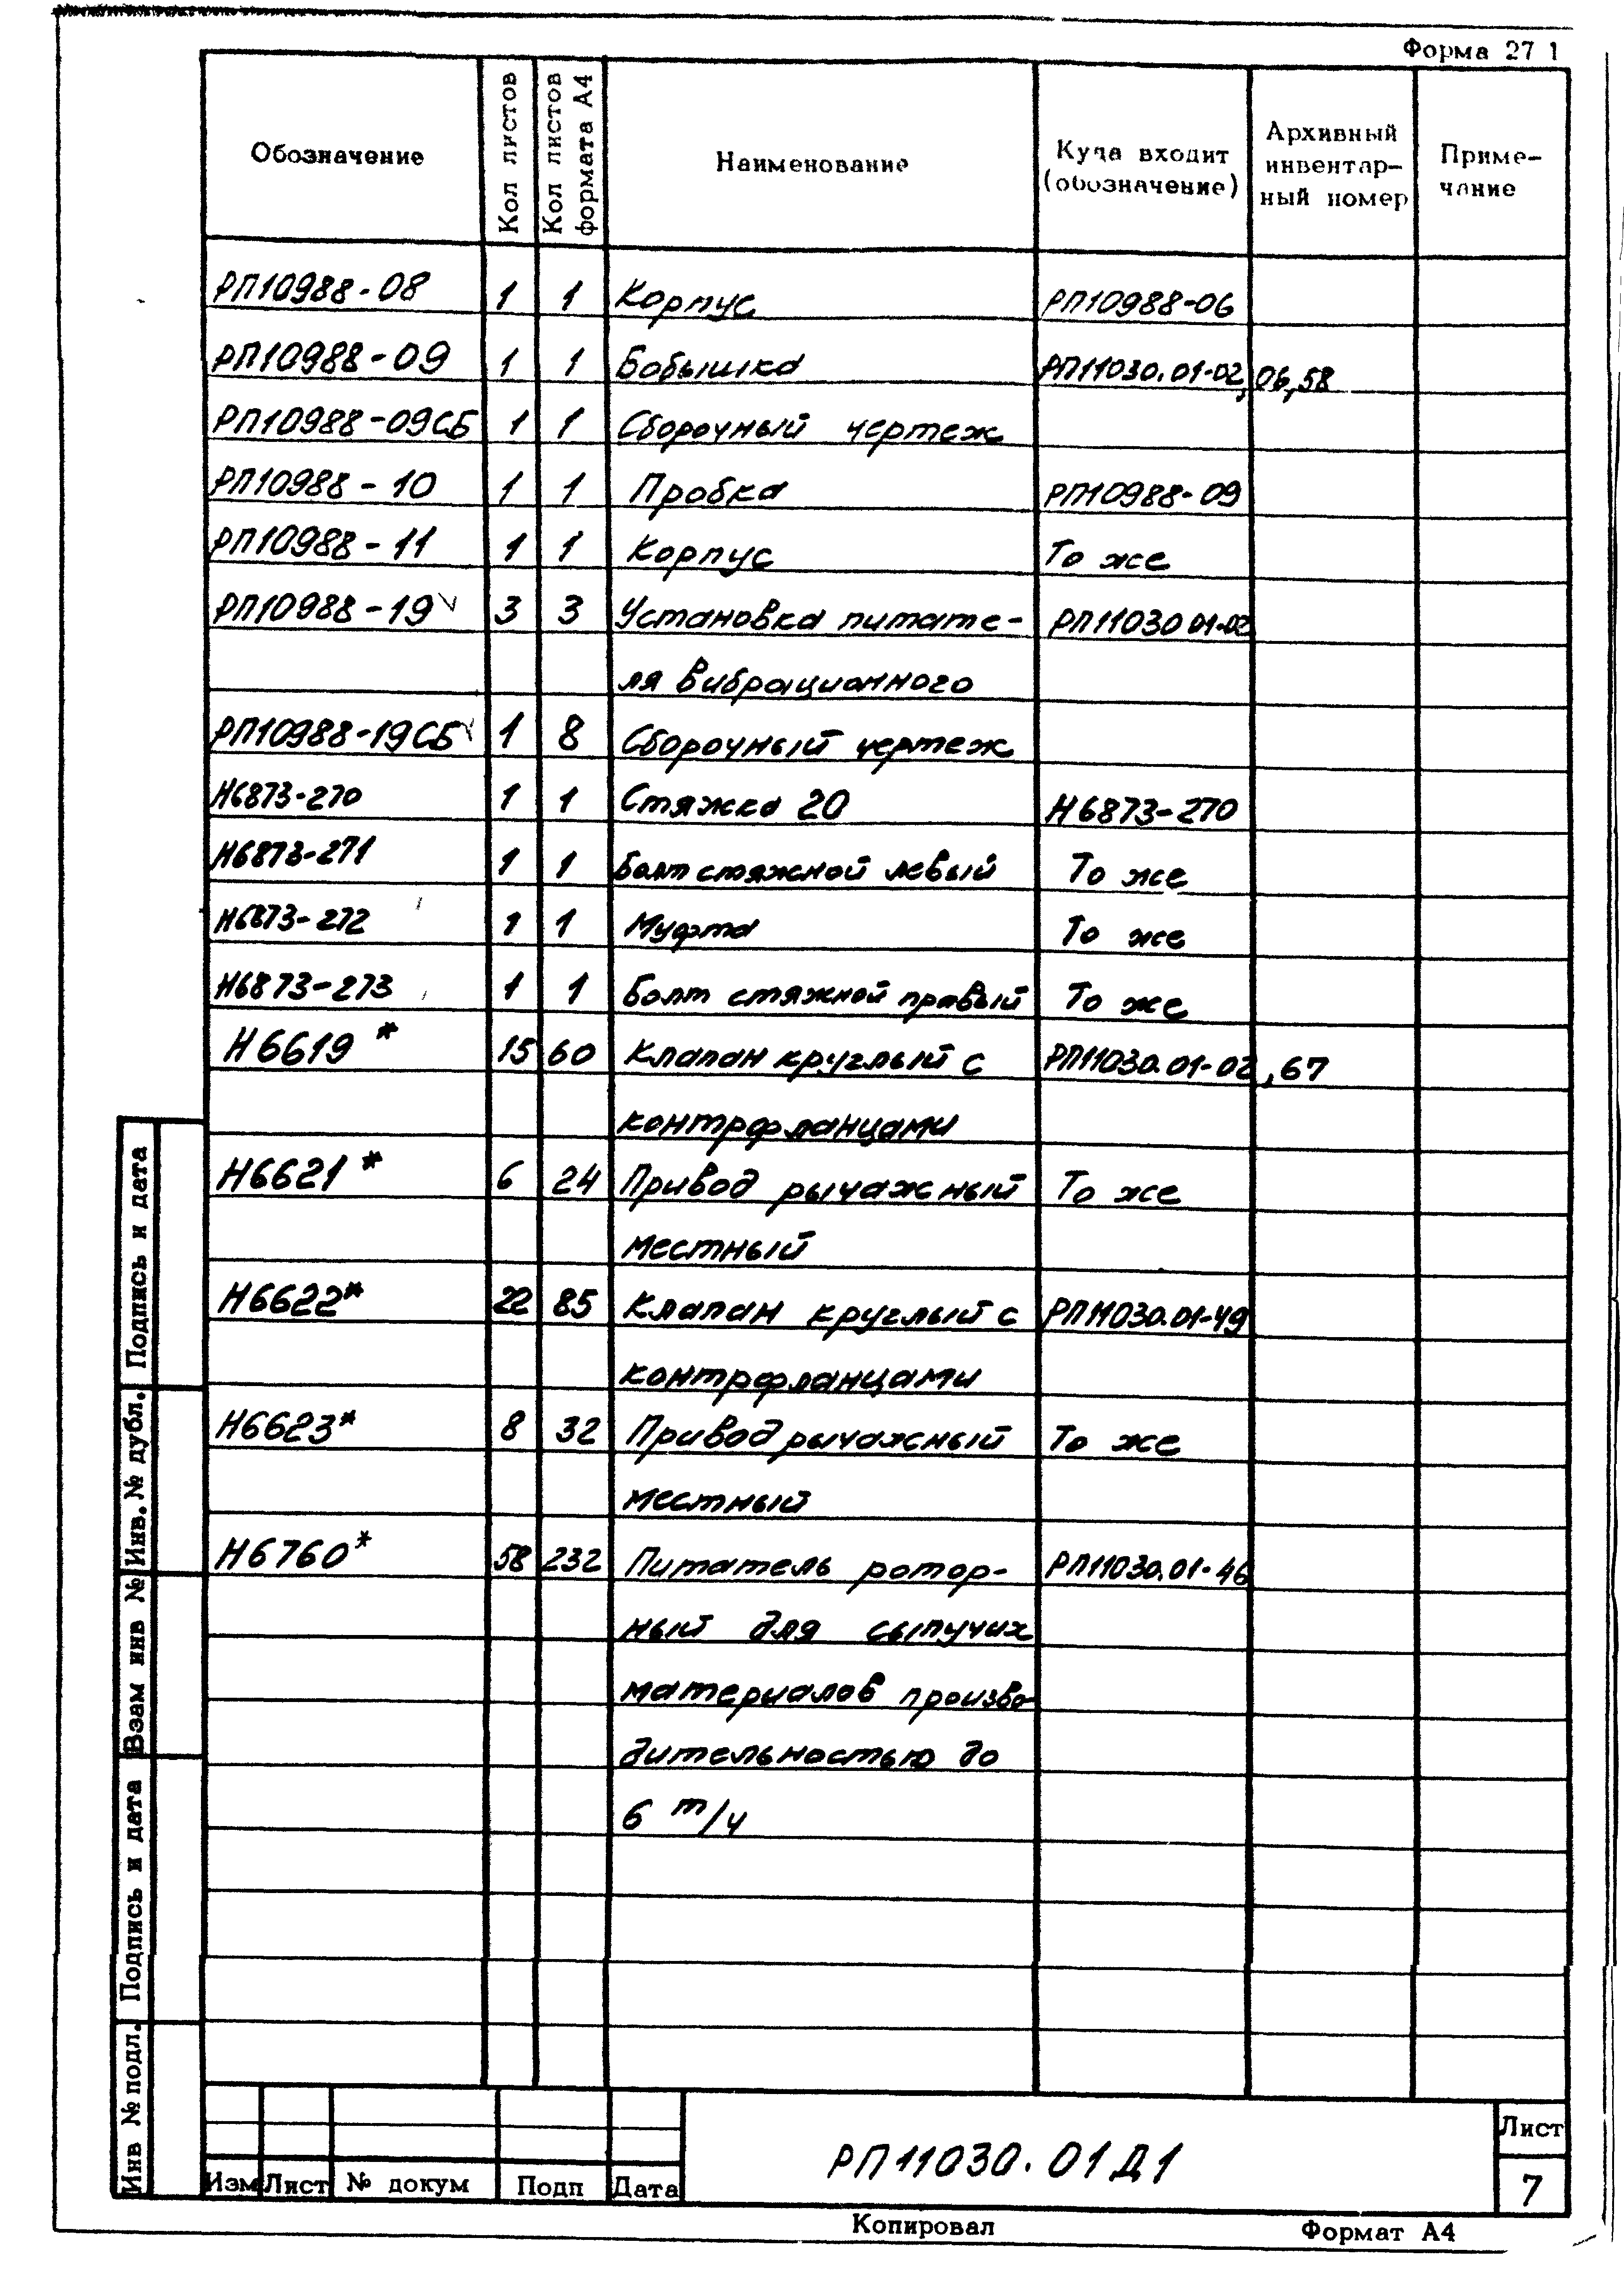 Форма 27 1
Обозначение
Кол листов
Кол листов
формата А4
Наименование
Куда входит
(обозначение)
Архивный
инвентар-
ный номер
Приме-
чание
РП10988-08 1 1 Корпус РП10988-06
РП10988-09 1 1 Бобышка РП11030.01-02,06,58
РП10988-09СБ 1 1 Сборочный чертеж
РП10988-10 1 1 Пробка РП10988-09
РП10988-11 1 1 Корпус То же
РП10988-19 3 3 Установка питате- РП11030 01-02
ля вибрационного
РП10988-19СБ 1 8 Сборочный чертеж
Н6873-270 1 1 Стяжка 20 Н6873-270
Н6873-271 1 1 Болт стяжной левый То же
Н6873-272 1 1 Муфта То же
Н6873-273 1 1 Болт стяжной правый То же
Н6619* 15 60 Клапан круглый с РП11030.01-02,67
контрфланцами
Н6621* 6 24 Привод рычажный То же
местный
Н6622* 22 85 Клапан круглый с РП11030.01-49
контрфланцами
Н6623* 8 32 Привод рычажный То же
местный
Н6760* 58 232 Питатель ротор- РП11030.01-46
ный для сыпучих
материалов произво
дительностью до
6 т/ч
Подпись и дата
Инв. № дубл.
Взам инв №
Подпись и дата
Инв № подл.
Изм Лист № докум Подп Дата
РП11030.01Д1
Лист
7
Копировал Формат А4